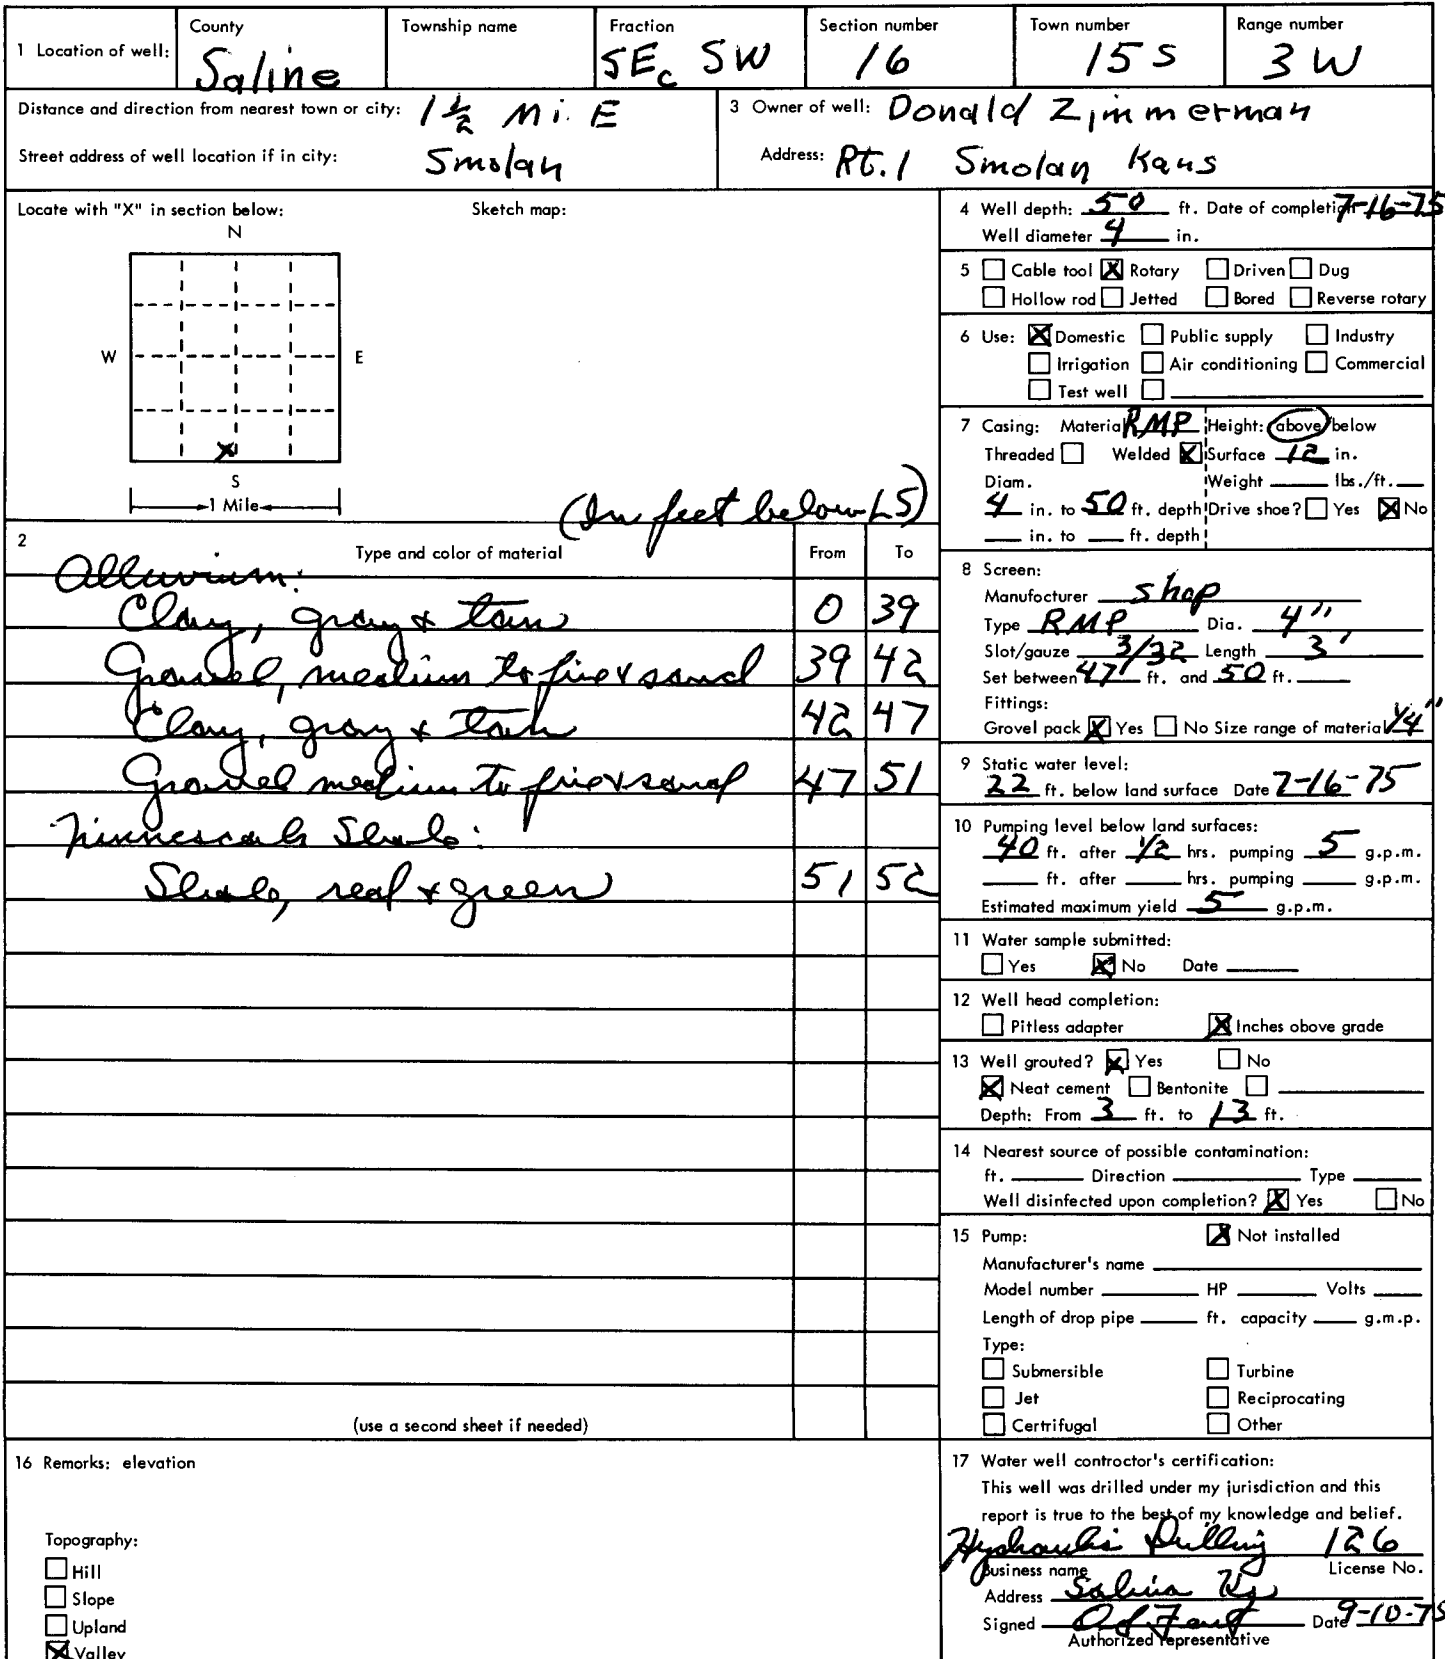 1 Location of well:
County
Saline
Township name
Fraction
SEc SW
Section number
16
Town number
15 S
Range number
3 W
Distance and direction from nearest town or city: 1 1/2 Mi. E
Street address of well location if in city: Smolan
3 Owner of well: Donald Zimmerman
Address: Rt. 1 Smolan Kans
Locate with "X" in section below: Sketch map:
N
W E
X
S
1 Mile
(In feet below LS)
2 Type and color of material From To
Alluvium:
Clay, gray & tan 0 39
Gravel, medium to fine & sand 39 42
Clay, gray & tan 42 47
Gravel medium to fine & sand 47 51
Ninnescah Shale:
Shale, red & green 51 52
(use a second sheet if needed)
4 Well depth: 50 ft. Date of completion 7-16-75
Well diameter 4 in.
5 Cable tool X Rotary Driven Dug
Hollow rod Jetted Bored Reverse rotary
6 Use: X Domestic Public supply Industry
Irrigation Air conditioning Commercial
Test well
7 Casing: Material RMP Height: above/below
Threaded Welded X Surface 12 in.
Diam. Weight lbs./ft.
4 in. to 50 ft. depth Drive shoe? Yes X No
in. to ft. depth
8 Screen:
Manufacturer Shop
Type RMP Dia. 4"
Slot/gauze 3/32 Length 3'
Set between 47' ft. and 50 ft.
Fittings:
Gravel pack X Yes No Size range of material 1/4"
9 Static water level:
22 ft. below land surface Date 7-16-75
10 Pumping level below land surfaces:
40 ft. after 1/2 hrs. pumping 5 g.p.m.
ft. after hrs. pumping g.p.m.
Estimated maximum yield 5 g.p.m.
11 Water sample submitted:
Yes X No Date
12 Well head completion:
Pitless adapter X Inches above grade
13 Well grouted? X Yes No
X Neat cement Bentonite
Depth: From 3 ft. to 13 ft.
14 Nearest source of possible contamination:
ft. Direction Type
Well disinfected upon completion? X Yes No
15 Pump: X Not installed
Manufacturer's name
Model number HP Volts
Length of drop pipe ft. capacity g.m.p.
Type:
Submersible Turbine
Jet Reciprocating
Certrifugal Other
16 Remarks: elevation
Topography:
Hill
Slope
Upland
X Valley
17 Water well contractor's certification:
This well was drilled under my jurisdiction and this
report is true to the best of my knowledge and belief.
Hydraulic Drilling 126
Business name License No.
Address Salina Ks
Signed Date 9-10-75
Authorized representative